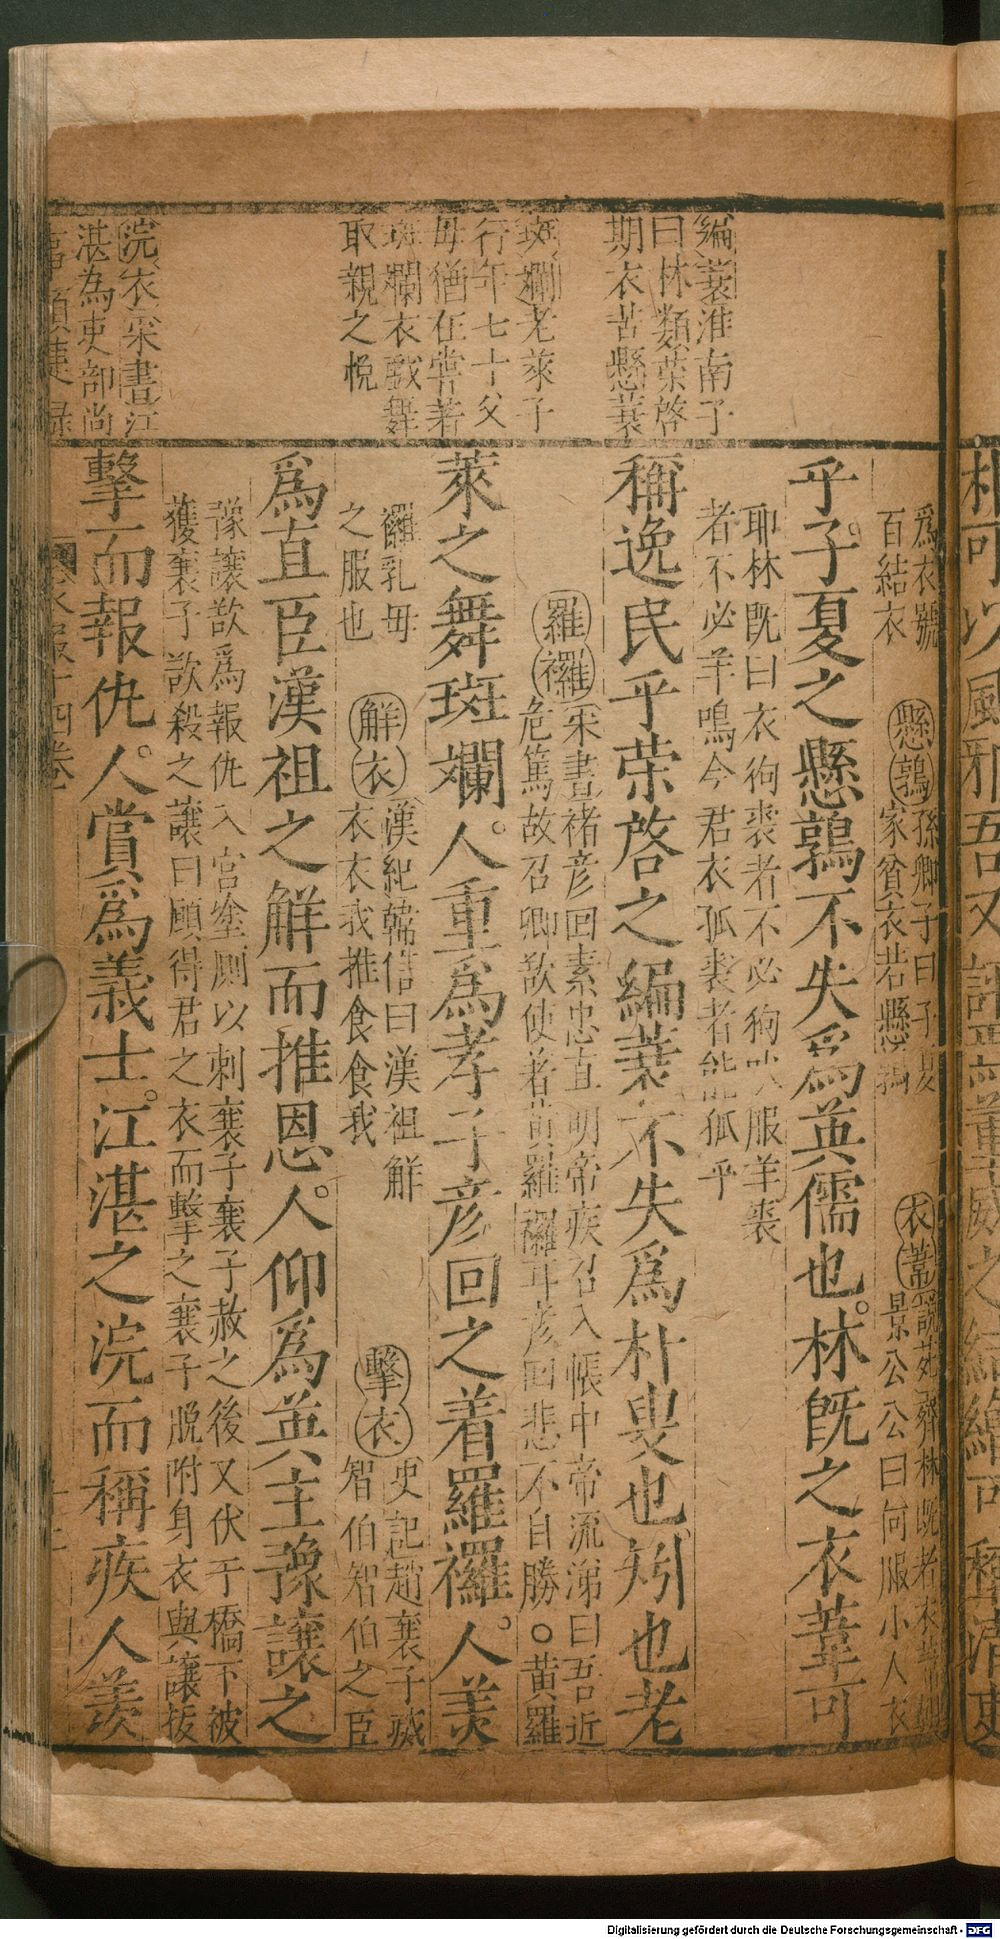 編蓑淮南子
曰林類葉啓
期衣苦懸蓑
斑斕老萊子
行年七十父
母猶在嘗著
斑斕衣戯舞
取親之悅
浣衣宋書江
湛為吏部尚
事類捷錄
為衣號
百結衣
懸鶉
孫卿子曰子夏
家貧衣若懸鶉
衣葦
說苑齊林既者衣葦
景公公曰何服小人衣
乎子夏之懸鶉不失為英儒也林旣之衣葦可
耶林既曰衣狗裘者不必狗吠服羊裘
者不必羊鳴今君衣狐裘者能狐乎
稱逸民乎荣啓之編蓑不失爲朴叟也矧也老
羅襬
宋書褚彥回素忠直明帝疾召入悵中帝流涕曰吾近
危篤故召卿欲使著黃羅襬耳彥回悲不自勝○黃羅
萊之舞斑斕人重爲孝子彥回之着羅襬人羡
襬乳母
之服也
解衣
漢紀韓信曰漢祖解
衣衣我推食食我
擊衣
史記趙襄子滅
智伯智伯之臣
爲直臣漢祖之解而推恩人仰爲英主豫讓之
豫讓欲爲報仇入宮塗厠以刺襄子襄子赦之後又伏于橋下被
獲襄子欲殺之讓曰願得君之衣而擊之襄子脫附身衣與讓拔
擊而報仇人賞爲義士江湛之浣而稱疾人羡
衣服十四卷